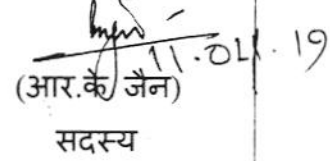 11.04.19
(आर.के जैन)
सदस्य